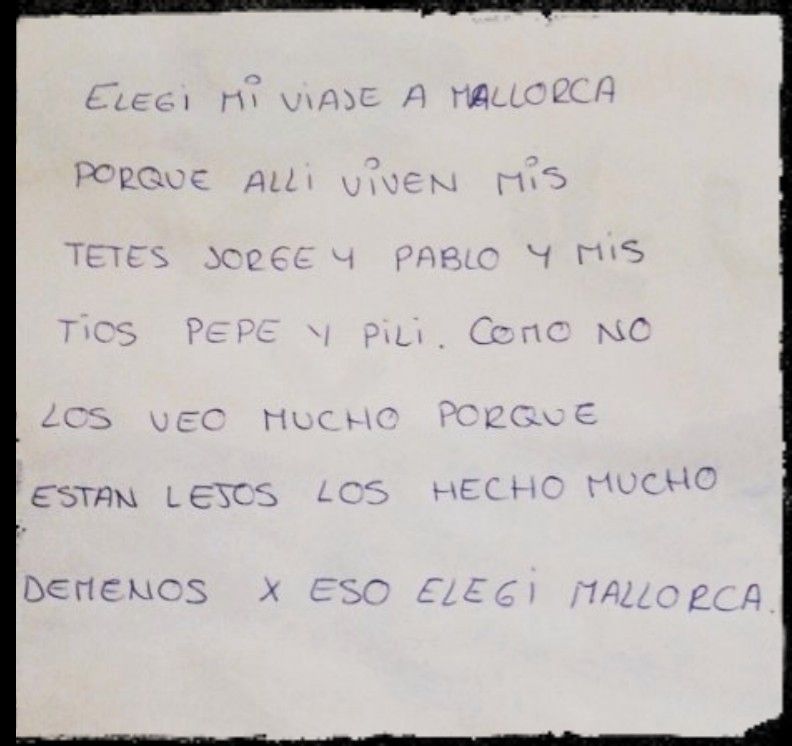 ELEGi Mi ViAJE A MALLORCA
PORQUE ALLi ViVEN MiS
TETES JORGE Y PABLO Y MiS
TiOS PEPE Y PiLi. COMO NO
LOS VEO MUCHO PORQUE
ESTAN LEJOS LOS HECHO MUCHO
DEMENOS X ESO ELEGi MALLORCA.